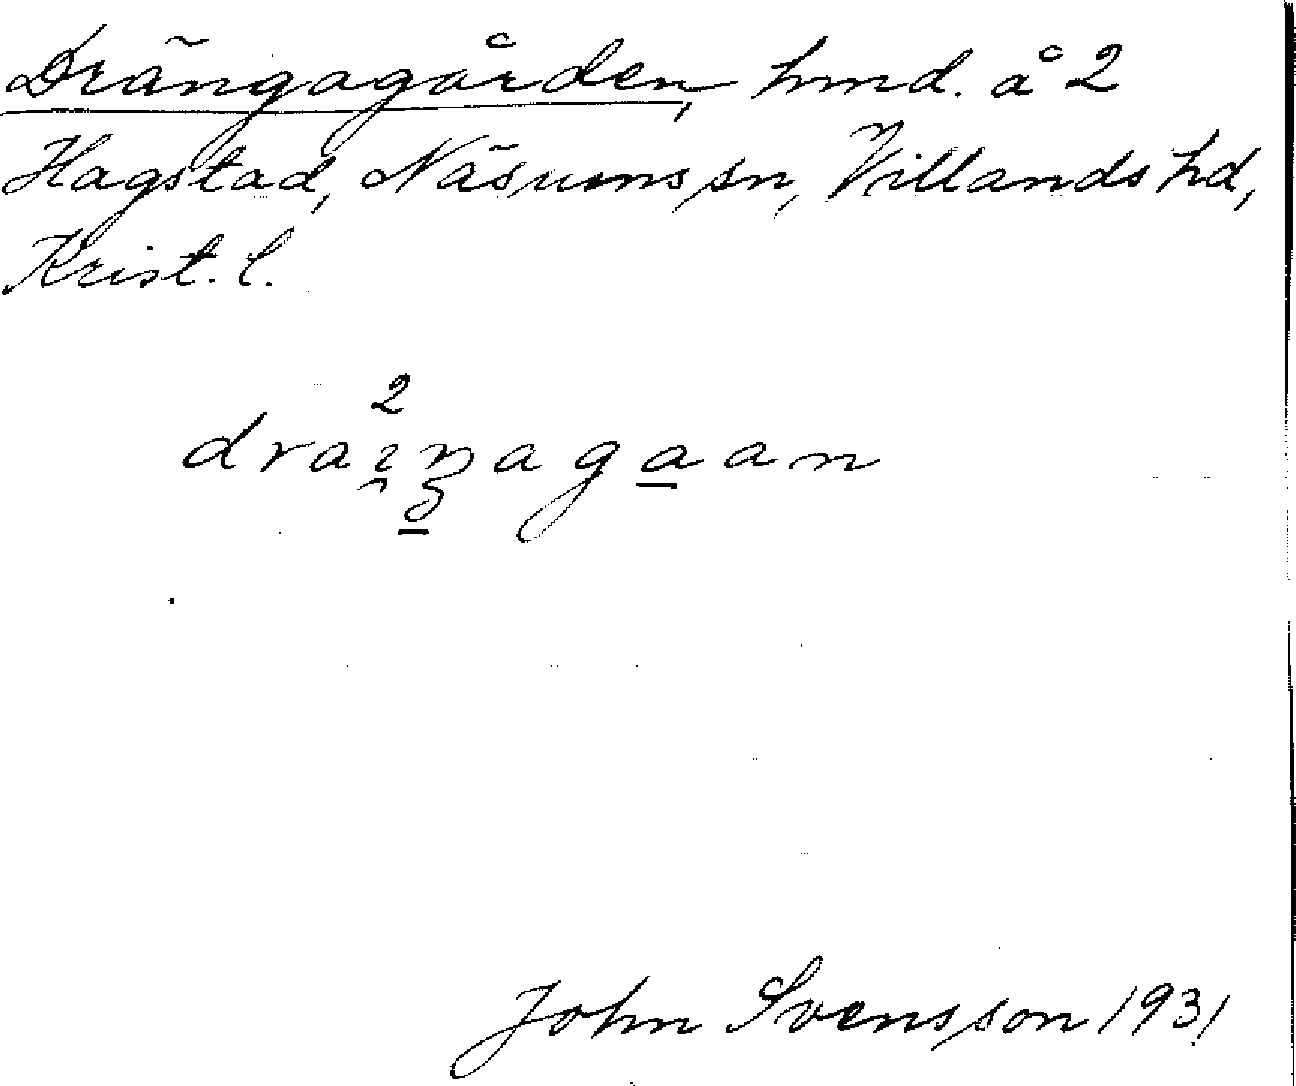 Drängagården, hmd. å 2
Hagstad, Näsums sn, Villands hd,
Krist. l.
2
John Svensson 1931